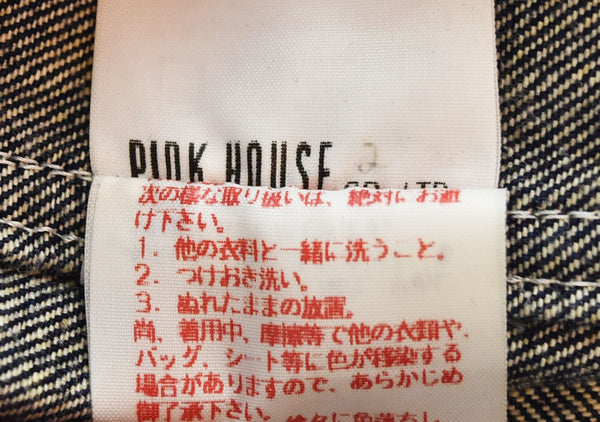 PINK HOUSE CO., LTD.
次の様な取り扱いは、絶対にお避
け下さい。
1. 他の衣料と一緒に洗うこと。
2. つけおき洗い。
3. ぬれたままの放置。
尚、着用中、摩擦等で他の衣類や、
バッグ、シート等に色が移染する
場合がありますので、あらかじめ
御了承下さい。